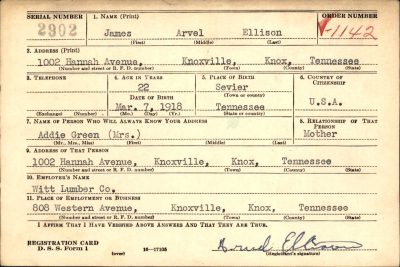 SERIAL NUMBER 1. NAME (Print) ORDER NUMBER
2902 James Arvel Ellison V-1142
(First) (Middle) (Last)
2. ADDRESS (Print)
1002 Hannah Avenue, Knoxville, Knox, Tennessee
(Number and street or R. F. D. number) (Town) (County) (State)
3. TELEPHONE 4. AGE IN YEARS 5. PLACE OF BIRTH 6. COUNTRY OF CITIZENSHIP
22 Sevier
DATE OF BIRTH (Town or county)
Mar. 7, 1918 Tennessee U.S.A.
(Exchange) (Number) (Mo.) (Day) (Yr.) (State or country)
7. NAME OF PERSON WHO WILL ALWAYS KNOW YOUR ADDRESS 8. RELATIONSHIP OF THAT PERSON
Addie Green (Mrs.) Mother
(Mr., Mrs., Miss) (First) (Middle) (Last)
9. ADDRESS OF THAT PERSON
1002 Hannah Avenue, Knoxville, Knox, Tennessee
(Number and street or R. F. D. number) (Town) (County) (State)
10. EMPLOYER'S NAME
Witt Lumber Co.
11. PLACE OF EMPLOYMENT OR BUSINESS
808 Western Avenue, Knoxville, Knox, Tennessee
(Number and street or R. F. D. number) (Town) (County) (State)
I AFFIRM THAT I HAVE VERIFIED ABOVE ANSWERS AND THAT THEY ARE TRUE.
REGISTRATION CARD
D. S. S. Form 1 16-17105
(over) (Registrant's signature)